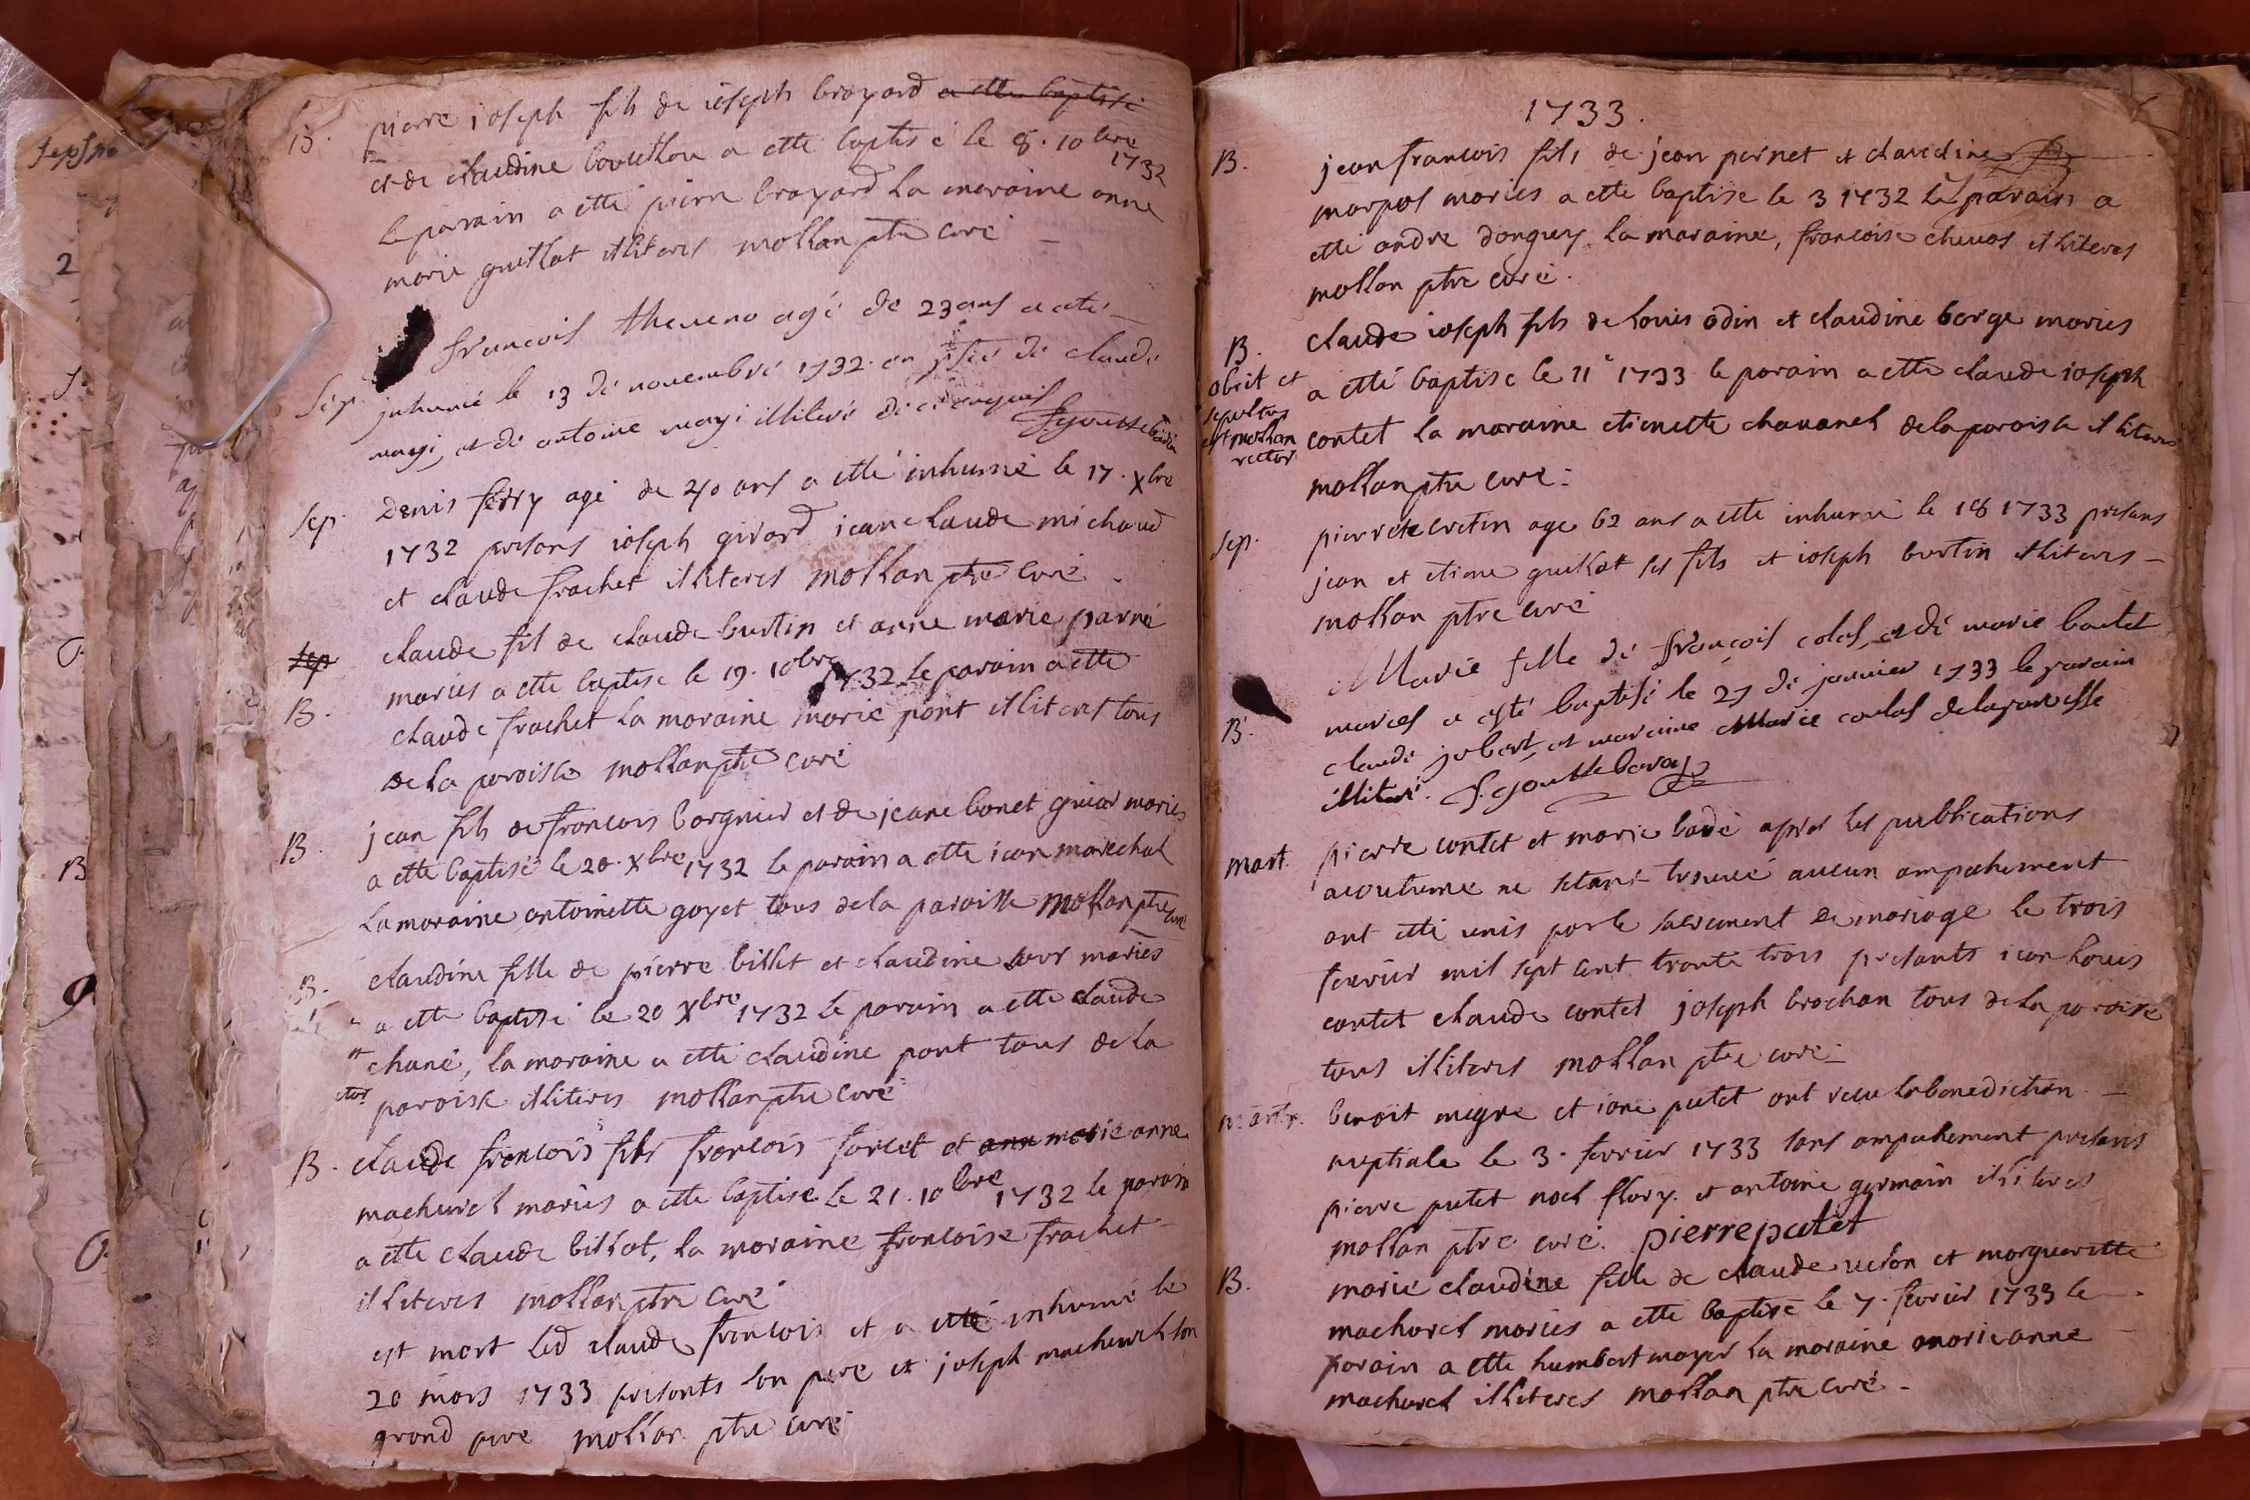 B. pierre ioseph fils de ioseph brayard a ette baptisé
et de claudine bouillou a ette baptisé le 8. 10bre
1732
le parain a etté pierre brayard la maraine anne
marie guillot illiteres mollan ptre curé
françois theveno agé de 23 ans a eté
Sép. inhumé le 13 de novembre 1732. en psce de claude
magi, et de antoine magi illiteré
Sep. Denis ferry agé de 40 ans a etté inhumé le 17. Xbre
1732 presans ioseph girard iean claude michaud
et claude frachet illiteres mollan ptre curé
Sep claude fil de claude burtin et anne marie parné
B. mariés a ette baptisé le 19. 10bre 1732 le parain a ette
claude frachet la moraine marie pont illiteres tous
de la paroisse mollan ptre curé
B. jean fils de francois borgnier et de jeane bonet guiar mariés
a etté baptisé le 20. Xbre 1732 le parain a etté iean marechal
la moraine antoinette goyet tous de la paroisse mollan ptre curé
B. claudine fille de pierre billet et claudine sour mariés
a ette baptisé le 20 Xbre 1732 le parain a ette claude
chané, la moraine a etté claudine pont tous de la
paroisse illiteres mollan ptre curé
B. claude francois fils francois forcet et ann marie anne
machurel mariés a ette baptisé le 21. 10bre 1732 le parain
a ette claude billot, la moraine francoise frachet
illiteres mollan ptre curé
est mort led claude francois et a etté inhumé le
20 mars 1733 presents son pere et joseph machurel son
grand pere mollan ptre curé
1733.
B. jean francois fils de jean pernet et claudine
marpos mariés a ette baptisé le 3 1732 le parain a
etté andre donguey la maraine, francoise illiteres
mollan ptre curé.
B. claude ioseph fils de louis odin et claudine barge mariés
obiit et
a etté baptisé le 11 1733 le parain a ette claude ioseph
sepultus
est mollan
contet la maraine etienette chavanel de la paroisse illiteres
rector
mollan ptre curé.
Sep. pierrete cretin age 62 ans a ette inhumé le 18 1733 presans
jean et etiene guillot ses fils et ioseph burtin illiteres
mollan ptre curé
Marie fille de françois colas, et de marie boutet
B. mariés a esté baptisé le 27 de janvier 1733 le parain
claude jobert, et maraine Marie coulas de la paroisse
illiteré.
mart. pierre contet et marie badé apres les publications
acoutume ne setant trouvé aucun ampechement
ont etté unis par le sacrement de mariage le trois
fevrier mil sept cent trante trois presants ican louis
contet claude contet joseph brochan tous de la paroise
tous illiteres mollan ptre curé
martr. benoit migne et iane putet ont receu la benediction
nuptiale le 3. fevrier 1733 sans ampechement presans
pierre putet noel flory. et antoine germain illiteres
mollan ptre curé. pierre putet
B. marie claudine fille de claude velon et margueritte
machurel mariés a etté baptisé le 7. fevrier 1733 le
parain a ette humbert mayer la moraine marie anne
machurel illiteres mollan ptre curé